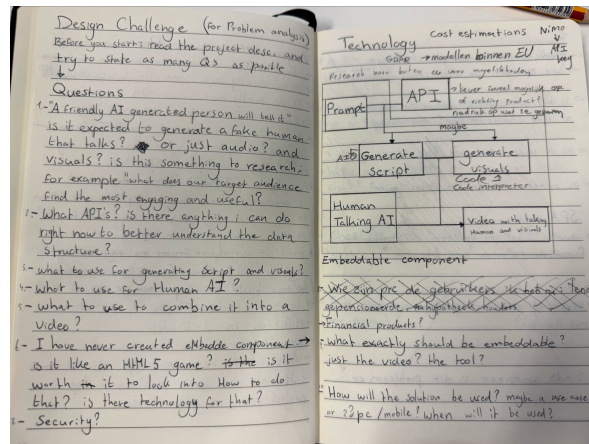 Design Challenge (for Problem analysis)
Before you start: read the project desc, and
try to state as many Qs as posible
Questions
1- "A friendly AI generated person will tell it"
is it expected to generate a fake human
that talks? or just audio? and
visuals? is this something to research,
for example "what does our target audience
find the most engiging and useful?
2- What API's? is there anything i can do
right now to better understand the data
structure?
3- what to use for generating Script and visuals?
4- What to use for Human AI?
5- what to use to combine it into a
video?
6- I have never created eMbedde component
is it like an HtML5 game? is the is it
worth in it to look into How to do
that? is there technology for that?
Security?
Technology
Cost estimations
Nimo
AI
GDPR → modellen binnen EU
Research
Prompt
API
of richting product?
nadruk op wat ze
maybe
Generate
Script
generate
visuals
Code
Code interpreter
Human
Talking AI
Video with talking
Human and visuals
Embeddable component
Wie zijn de gebruikers
gepensioneerde
Financial products?
what exactly should be embeddable?
just the video? the tool?
How will the solution be used? maybe a use case
or 2? pc/mobile? when will it be used?